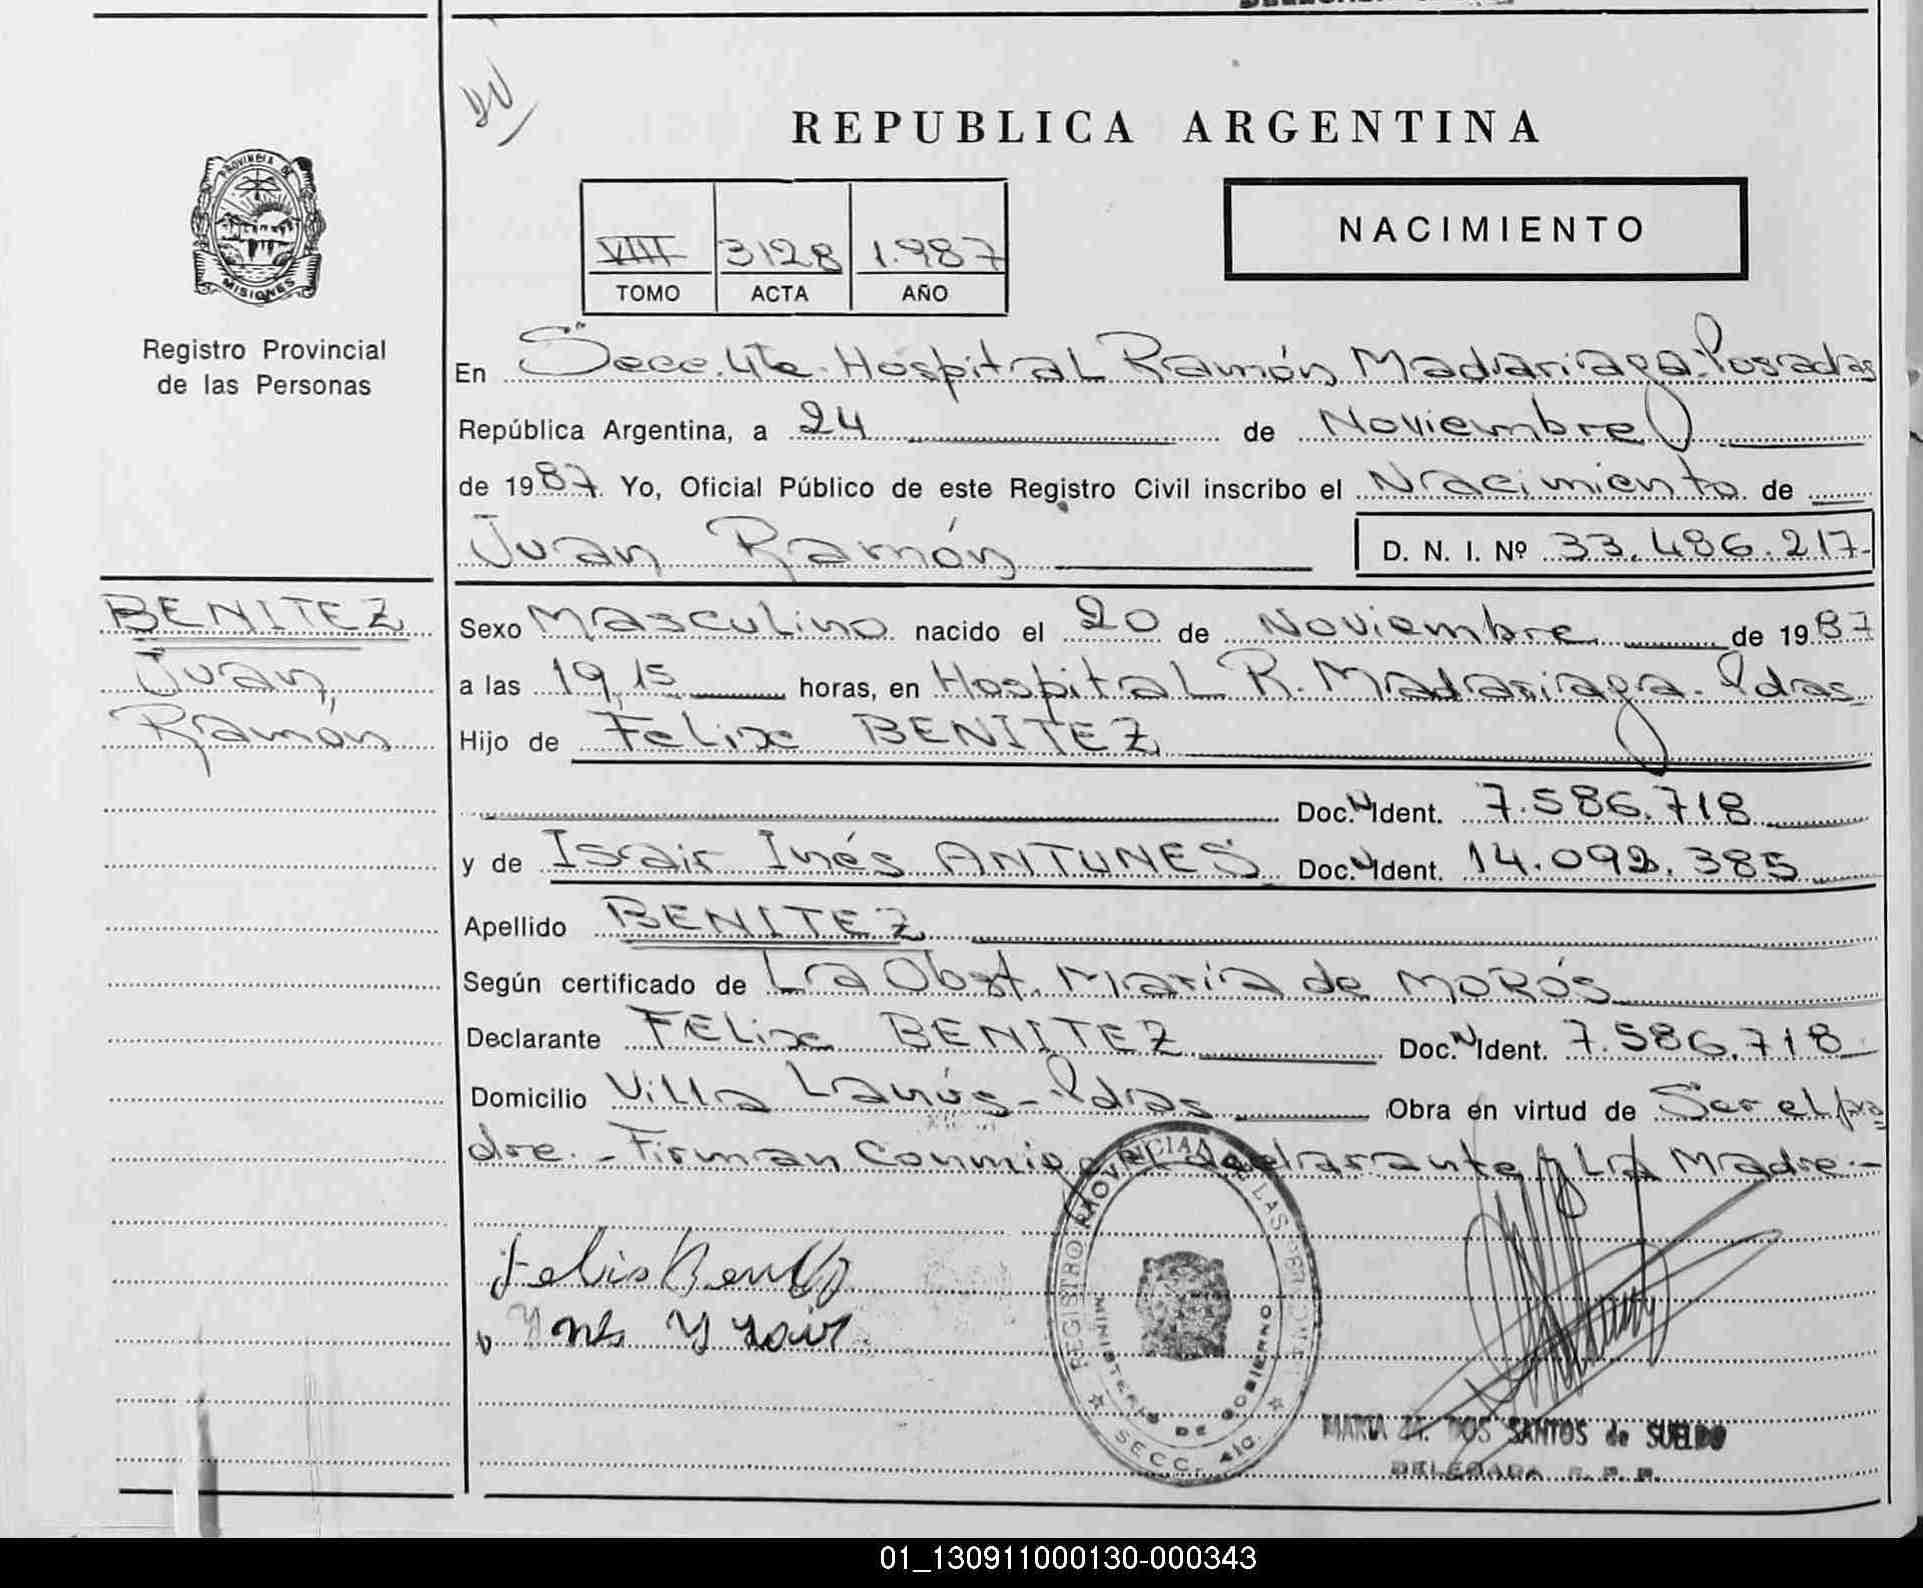 REPUBLICA ARGENTINA
PROVINCIA DE
MISIONES
Registro Provincial
de las Personas
VIII 3128 1.987
TOMO ACTA AÑO
NACIMIENTO
En Secc. 4ta. Hospital Ramón Madariaga-Posadas
República Argentina, a 24 de Noviembre
de 1987. Yo, Oficial Público de este Registro Civil inscribo el Nacimiento de
Juan Ramón
D. N. I. Nº 33.486.217-
BENITEZ
Juan,
Ramón
Sexo Masculino nacido el 20 de Noviembre de 1987
a las 19,15 horas, en Hospital R. Madariaga. Pdas
Hijo de Felix BENITEZ
Doc. N Ident. 7.586.718
y de Isair Inés ANTUNES Doc. N Ident. 14.092.385
Apellido BENITEZ
Según certificado de La Obst. María de MORÓS
Declarante FELix BENITEZ Doc. N Ident. 7.586.718
Domicilio Villa Lanús - Pdas Obra en virtud de Ser el pa
dre. - Firman Conmigo el declarante y La Madre.-
Felis Benitez
Ynes Ysair
REGISTRO PROVINCIAL DE LAS PERSONAS
MINISTERIO DE GOBIERNO
SECC. 4ta.
MARIA DOS SANTOS de SUELDO
DELEGADA R. P. P.
01_130911000130-000343